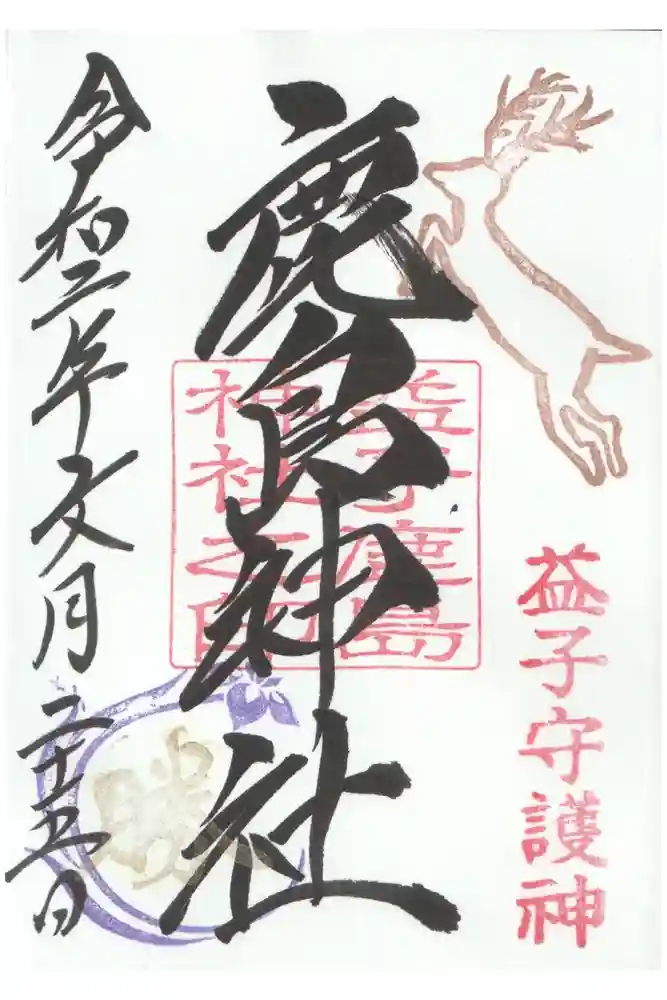 益子守護神
鹿島神社
益子鹿島
神社之印
令和二年文月二十五日
勝